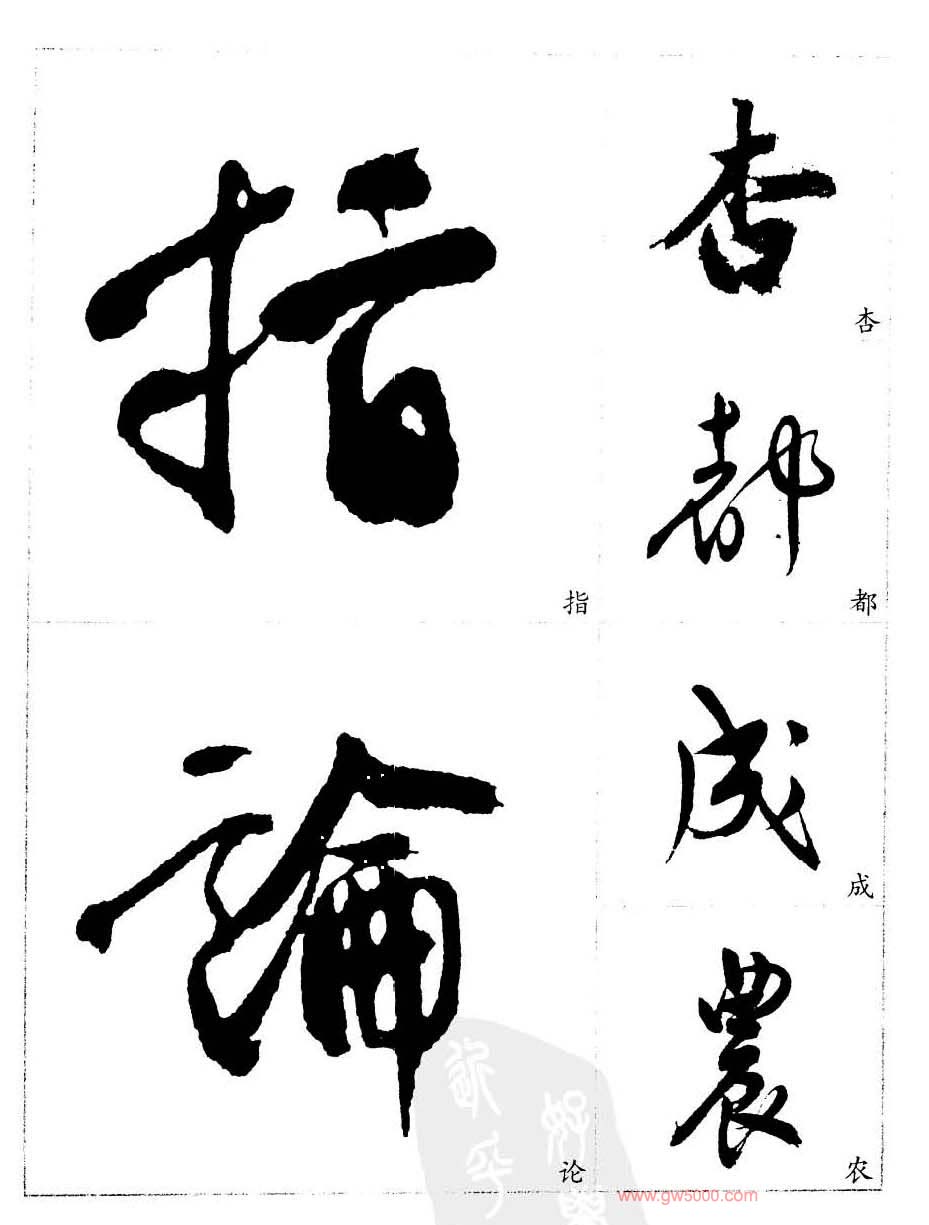 指
指
論
论
杏
杏
都
都
成
成
農
农
www.gw5000.com